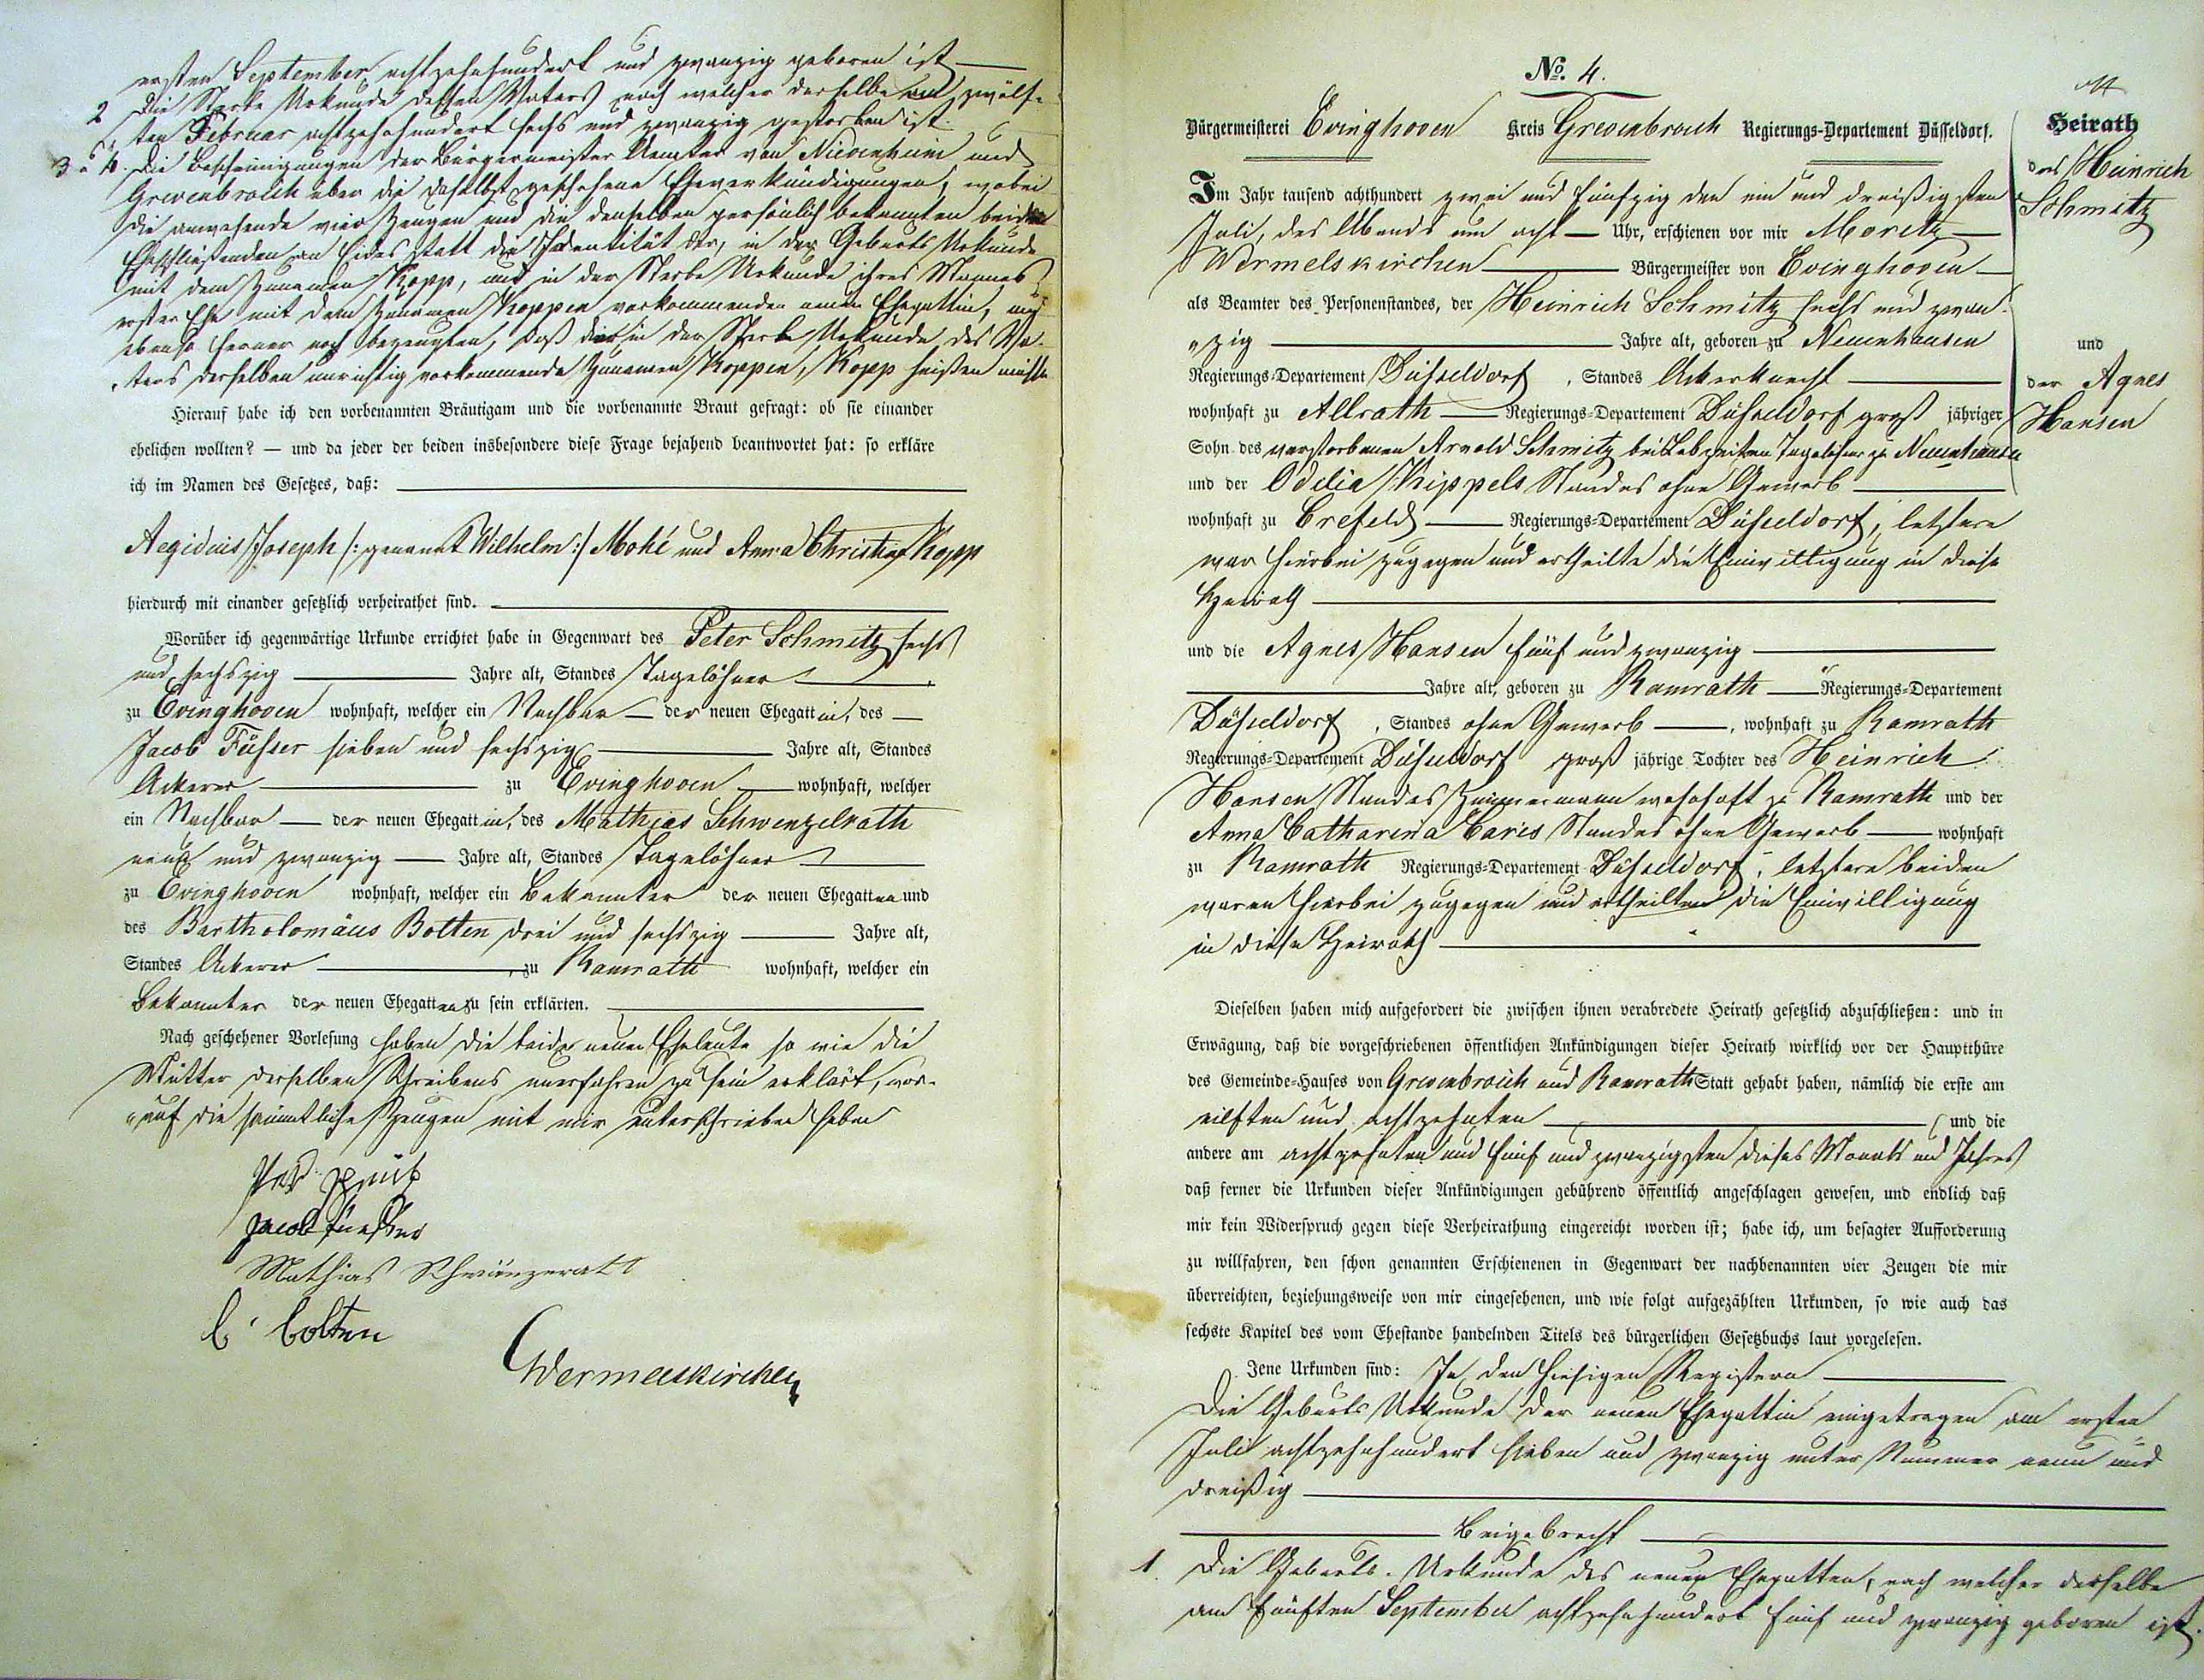 ersten September achtzehnhundert und zwanzig geboren ist
2 Die Sterbe Urkunde dessen Vaters nach welcher derselbe am zwölf-
ten Februar achtzehnhundert sechs und zwanzig gestorben ist.
3 u 4. Die Bescheinigungen der Bürgermeister Aemter von Nievenheim und
Grevenbroich über die daselbst geschehene Eheverkündigungen, wobei
die anwesende vier Zeugen und die denselben persönlich bekannten beiden
Eheschließenden an Eides statt die Identität der, in der Geburts Urkunde
mit dem Zunamen Kopp, und in der Sterbe Urkunde ihres Mannes
erster Ehe mit dem Zunamen Koppen vorkommenden neuen Ehegattin, und
ebenso ferner noch bezeugten, daß der in der Sterbe Urkunde des Va-
ters derselben unrichtig vorkommende Zunamen Koppen, Kopp heißen müsse
Hierauf habe ich den vorbenannten Bräutigam und die vorbenannte Braut gefragt: ob sie einander
ehelichen wollten? — und da jeder der beiden insbesondere diese Frage bejahend beantwortet hat: so erkläre
ich im Namen des Gesetzes, daß:
Aegidius Joseph /: genannt Wilhelm :/ Mohé und Anna Christina Kopp
hierdurch mit einander gesetzlich verheirathet sind.
Worüber ich gegenwärtige Urkunde errichtet habe in Gegenwart des Peter Schmitz sechs
und sechszig Jahre alt, Standes Tagelöhner
zu Evinghoven wohnhaft, welcher ein Nachbar — der neuen Ehegattin, des —
Jacob Füsser sieben und sechszig Jahre alt, Standes
Ackerer zu Evinghoven wohnhaft, welcher
ein Nachbar — der neuen Ehegattin, des Mathias Schwenzelrath
neun und zwanzig — Jahre alt, Standes Tagelöhner
zu Evinghoven wohnhaft, welcher ein Bekannter der neuen Ehegatten und
des Bartholomäus Bolten drei und sechszig Jahre alt,
Standes Ackerer zu Ramrath wohnhaft, welcher ein
Bekannter der neuen Ehegatten zu sein erklärten.
Nach geschehener Vorlesung haben die beide neuen Eheleute so wie die
Mütter derselben Schreibens unerfahren zu sein erklärt, wor-
auf die sämmtliche Zeugen mit mir unterschrieben haben
Jacob Füesser
Mathias Schwänzeratt
b. bolten
Wermelskirchen
No. 4.
Bürgermeisterei Evinghoven Kreis Grevenbroich Regierungs-Departement Düsseldorf.
Heirath
des Heinrich
Schmitz
und
der Agnes
Hansen
Im Jahr tausend achthundert zwei und fünfzig den ein und dreißigsten
Juli, des Abends um acht — Uhr, erschienen vor mir Moritz —
Wermelskirchen Bürgermeister von Evinghoven —
als Beamter des Personenstandes, der Heinrich Schmitz sechs und zwan-
zig Jahre alt, geboren zu Neuenhausen
Regierungs-Departement Düsseldorf, Standes Ackerknecht
wohnhaft zu Allrath — Regierungs-Departement Düsseldorf groß jähriger
Sohn des verstorbenen Arnold Schmitz bei Lebzeiten Tagelöhner zu Neuenhausen
und der Odilia Kippels Standes ohne Gewerb
wohnhaft zu Crefeld — Regierungs-Departement Düsseldorf, letztere
war hierbei zugegen und ertheilte die Einwilligung in diese
Heirath
und die Agnes Hansen fünf und zwanzig
Jahre alt, geboren zu Ramrath — Regierungs-Departement
Düsseldorf, Standes ohne Gewerb —, wohnhaft zu Ramrath
Regierungs-Departement Düsseldorf groß jährige Tochter des Heinrich
Hansen Standes Zimmermann wohnhaft zu Ramrath und der
Anna Catharina Caris Standes ohne Gewerb — wohnhaft
zu Ramrath Regierungs-Departement Düsseldorf, letztere beiden
waren hierbei zugegen und ertheilten die Einwilligung
in diese Heirath
Dieselben haben mich aufgefordert die zwischen ihnen verabredete Heirath gesetzlich abzuschließen: und in
Erwägung, daß die vorgeschriebenen öffentlichen Ankündigungen dieser Heirath wirklich vor der Hauptthüre
des Gemeinde-Hauses von Grevenbroich und Ramrath Statt gehabt haben, nämlich die erste am
eilften und achtzehnten und die
andere am achtzehnten und fünf und zwanzigsten dieses Monats und Jahres
daß ferner die Urkunden dieser Ankündigungen gebührend öffentlich angeschlagen gewesen, und endlich daß
mir kein Widerspruch gegen diese Verheirathung eingereicht worden ist; habe ich, um besagter Aufforderung
zu willfahren, den schon genannten Erschienenen in Gegenwart der nachbenannten vier Zeugen die mir
überreichten, beziehungsweise von mir eingesehenen, und wie folgt aufgezählten Urkunden, so wie auch das
sechste Kapitel des vom Ehestande handelnden Titels des bürgerlichen Gesetzbuchs laut vorgelesen.
Jene Urkunden sind: In den hiesigen Registern
Die Geburts Urkunde der neuen Ehegattin eingetragen am ersten
Juli achtzehnhundert sieben und zwanzig unter Nummer neun und
dreißig
Beigebracht
1. Die Geburts-Urkunde des neuen Ehegatten, nach welcher derselbe
am fünften September achtzehnhundert fünf und zwanzig geboren ist.